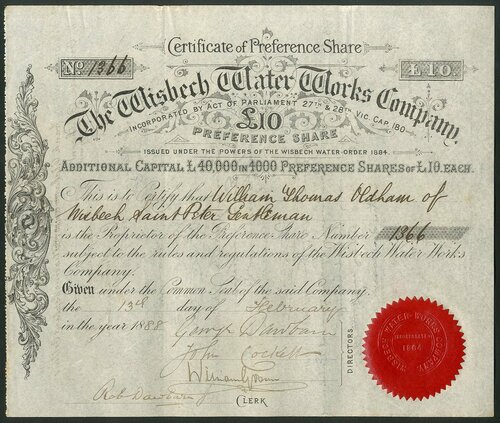 Certificate of Preference Share
No. 1366
£10
The Wisbech Water Works Company.
INCORPORATED BY ACT OF PARLIAMENT 27TH & 28TH VIC CAP. 180
£10
PREFERENCE SHARE
ISSUED UNDER THE POWERS OF THE WISBECH WATER ORDER 1884.
ADDITIONAL CAPITAL £40,000 IN 4000 PREFERENCE SHARES OF £10. EACH.
This is to Certify that William Thomas Oldham of
Wisbech Saint Peter Gentleman
is the Proprietor of the Preference Share Number 1366
subject to the rules and regulations of the Wisbech Water Works
Company.
Given under the Common Seal of the said Company.
the 13th day of February
in the year 1888
George Dawbarn
John Cockett
DIRECTORS.
Rob Dawbarn
CLERK
WISBECH WATER-WORKS COMPANY
INCORPORATED
1864